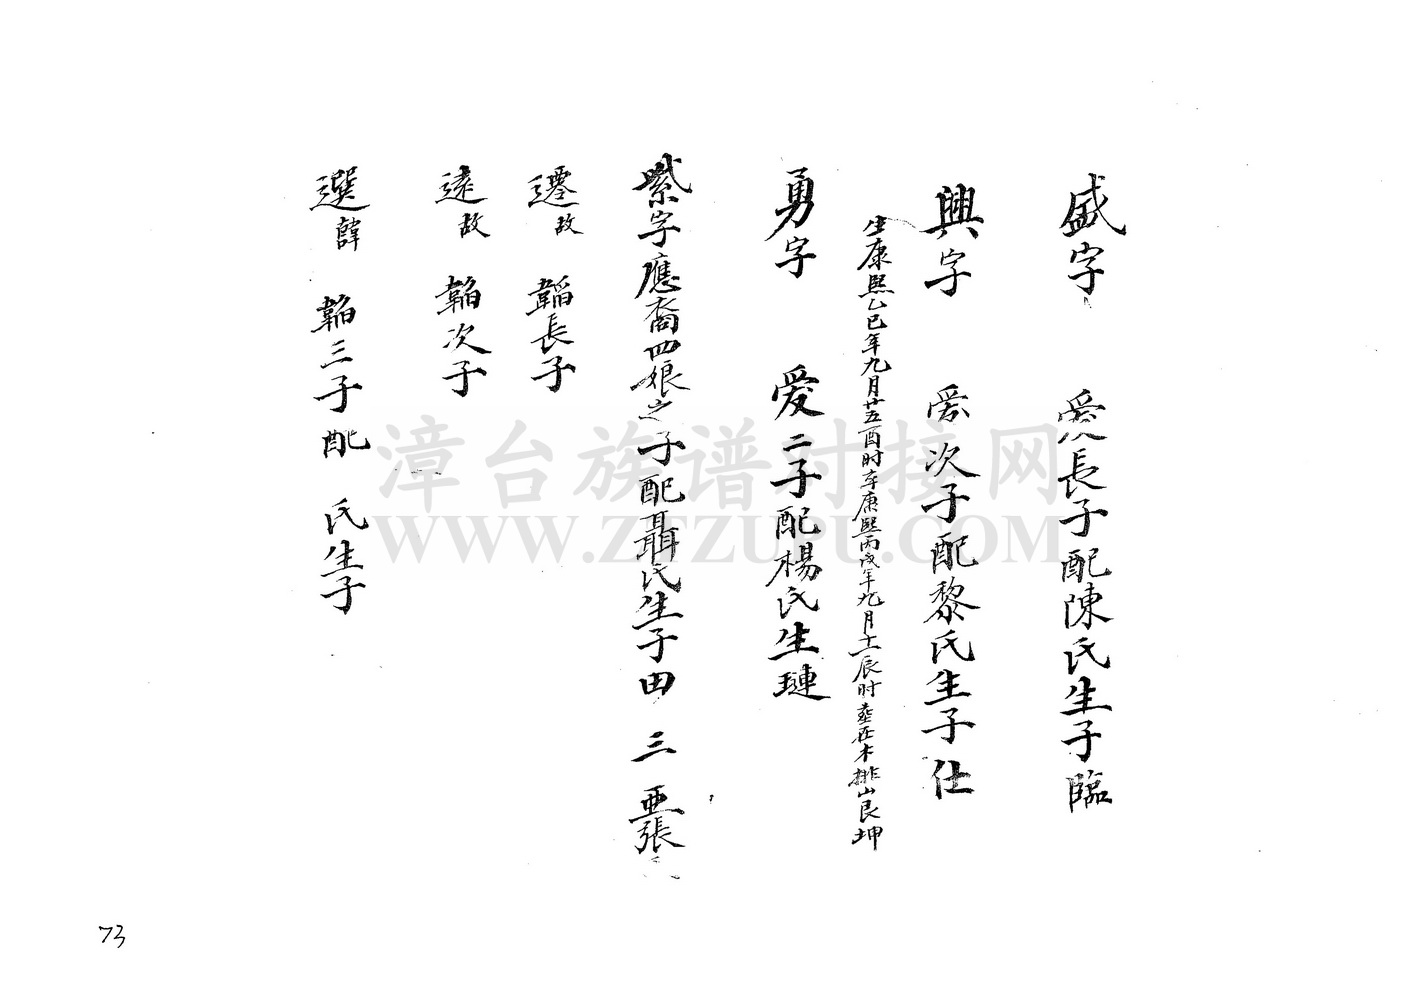 盛字 爱長子配陳氏生子臨
興字 爱次子配黎氏生子仕
生康熙乙巳年九月廿五酉时卒康熙丙戌年九月十二辰时葬在木排山艮坤
勇字 爱二子配楊氏生璉
縈字應裔四娘之子配聶氏生子田 三 亜張
遷故 韜長子
遠故 韜次子
選諱 韜三子配 氏生子
漳台族谱对接网
WWW.ZTZUPU.COM
73